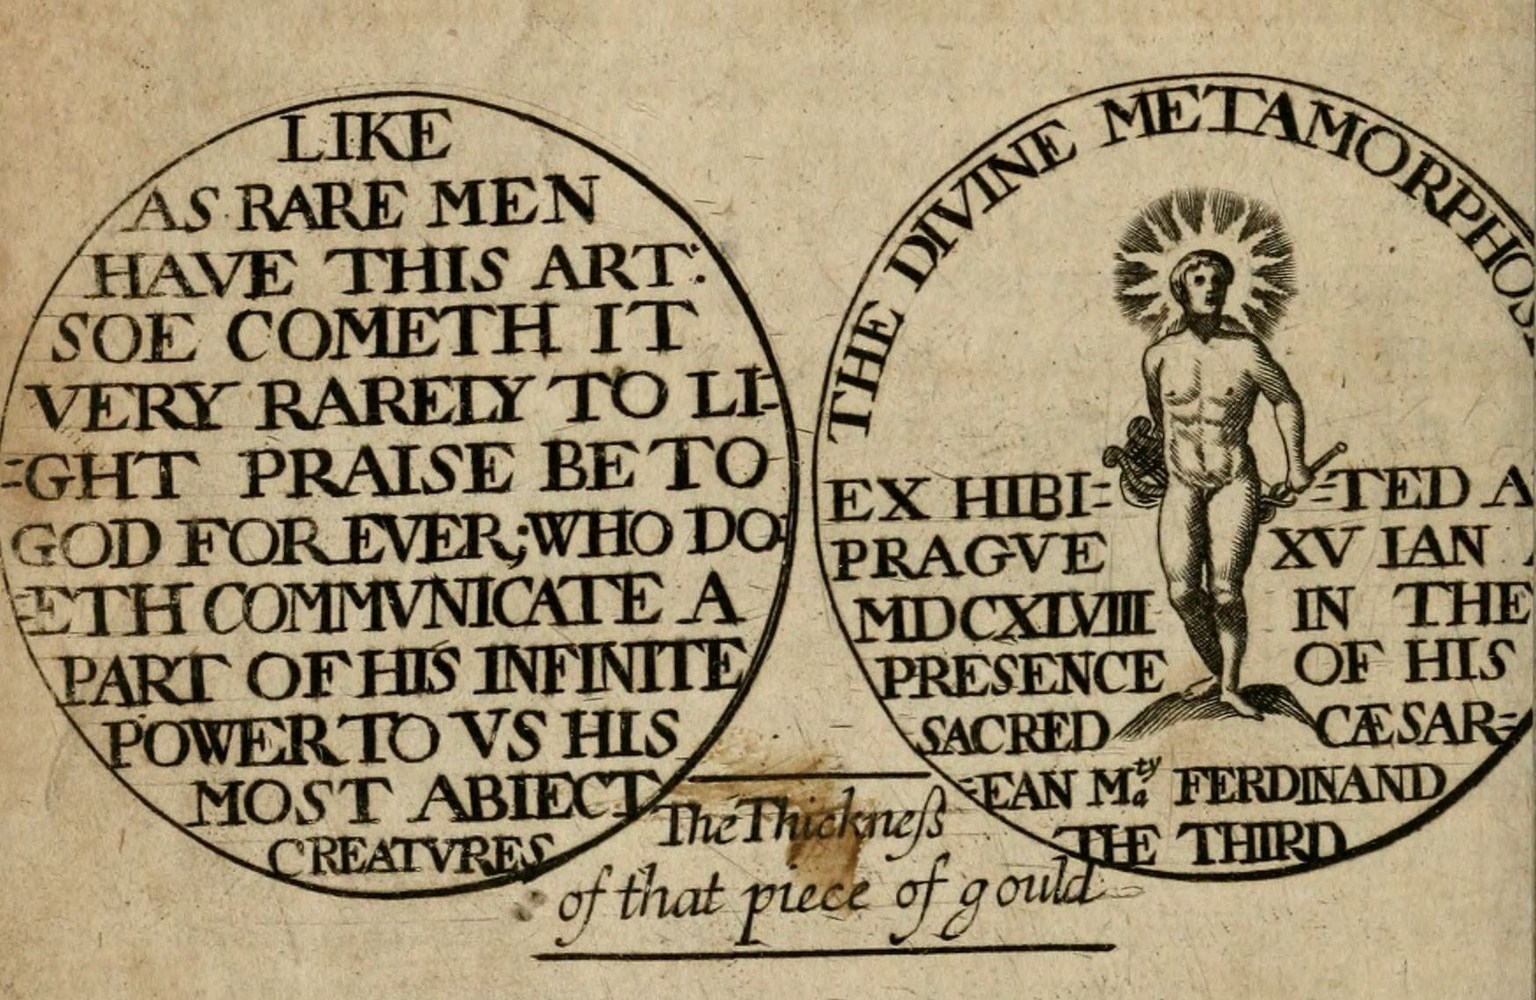 LIKE
AS RARE MEN
HAVE THIS ART:
SOE COMETH IT
VERY RARELY TO LI=
=GHT PRAISE BE TO
GOD FOR EVER; WHO DO=
=ETH COMMVNICATE A
PART OF HIS INFINITE
POWER TO VS HIS
MOST ABIECT
CREATVRES
THE DIVINE METAMORPHOSI
EX HIBI= =TED A
PRAGVE XV IAN
MDCXLVIII IN THE
PRESENCE OF HIS
SACRED CÆSAR=
=EAN Ma^ty FERDINAND
THE THIRD
The Thickneſs
of that piece of gould